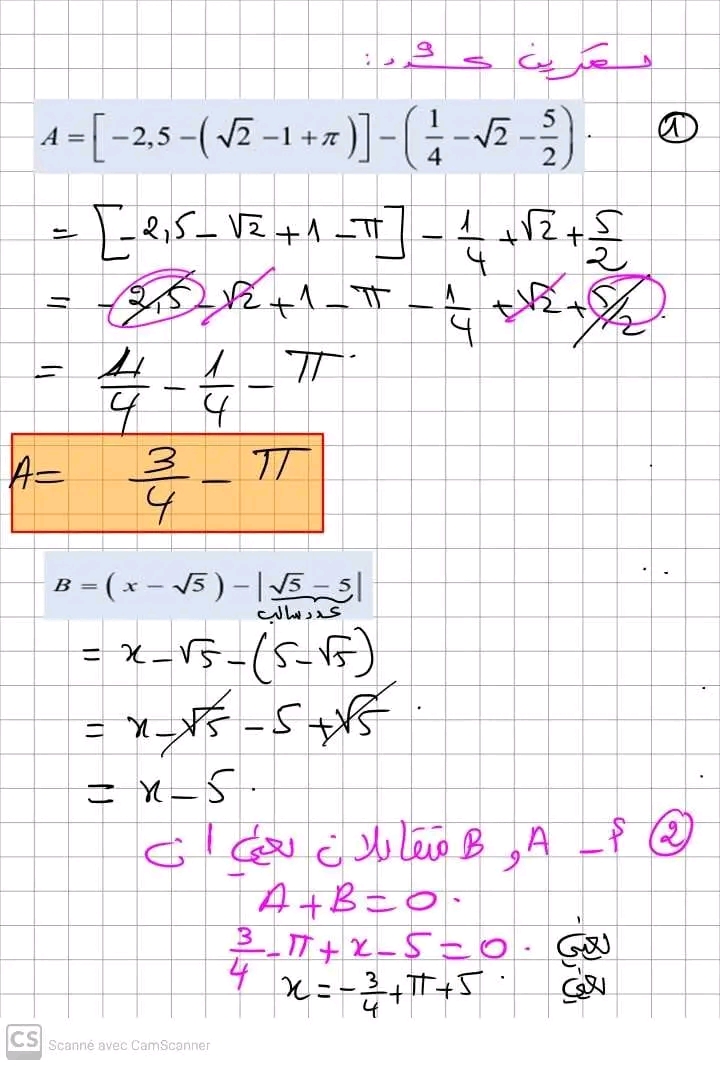 تمرين عدد 9:
① A = [ −2,5 − ( √2 − 1 + π ) ] − ( 1/4 − √2 − 5/2 )
= [ −2,5 − √2 + 1 − π ] − 1/4 + √2 + 5/2
= −2,5 − √2 + 1 − π − 1/4 + √2 + 5/2
= 4/4 − 1/4 − π
A = 3/4 − π
B = ( x − √5 ) − | √5 − 5 |
عدد سالب
= x − √5 − (5 − √5)
= x − √5 − 5 + √5
= x − 5
② أ ـ A و B متقابلان يعني ان
A + B = 0
3/4 − π + x − 5 = 0 يعني
x = − 3/4 + π + 5 يعني
CS Scanné avec CamScanner